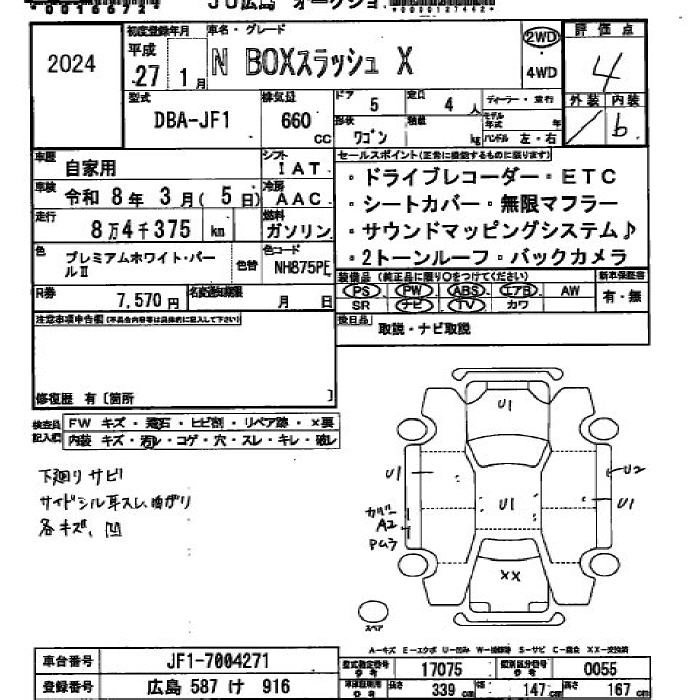 JU広島 オークション
2024
初度登録年月
車名・グレード
平成
27 1月
N BOXスラッシュ X
2WD
4WD
評価点
4
型式
DBA-JF1
排気量
660 cc
ドア 5
定員 4人
形状 ワゴン
積載 kg
ディーラー・並行
モデル年式 年
ハンドル 左・右
外装 内装
b
車歴 自家用
シフト IAT
車検 令和8年3月(5日)
冷房 AAC
走行 8万4千375 km
燃料 ガソリン
セールスポイント(正常に機能するものに限ります)
・ドライブレコーダー・ETC
・シートカバー・無限マフラー
・サウンドマッピングシステム♪
・2トーンルーフ・バックカメラ
色 プレミアムホワイト・パールⅡ
色替
色コード NH875PE
R券 7,570円
名変通知期限 月 日
装備品(純正品に限り○をつけてください)
PS PW ABS エアB AW
SR ナビ TV カワ
新車保証書
有・無
後日品 取説・ナビ取説
注意事項申告欄(不具合内容等は具体的に記入して下さい)
修復歴 有〔箇所 〕
検査員記入欄
FW キズ・飛石・ヒビ割・リペア跡・×要
内装 キズ・汚れ・コゲ・穴・スレ・キレ・破レ
下廻りサビ
サイドシル耳スレ、曲がり
各キズ、凹
U1
U1
U1
U2
U1
カバー
A2
PムラXX
スペア
A-キズ E-エクボ U-凹み W-補修跡 S-サビ C-腐食 XX-交換済
車台番号 JF1-7004271
型式指定番号 17075
類別区分番号 0055
登録番号 広島 587 け 916
長さ 339 cm
幅 147 cm
高さ 167 cm